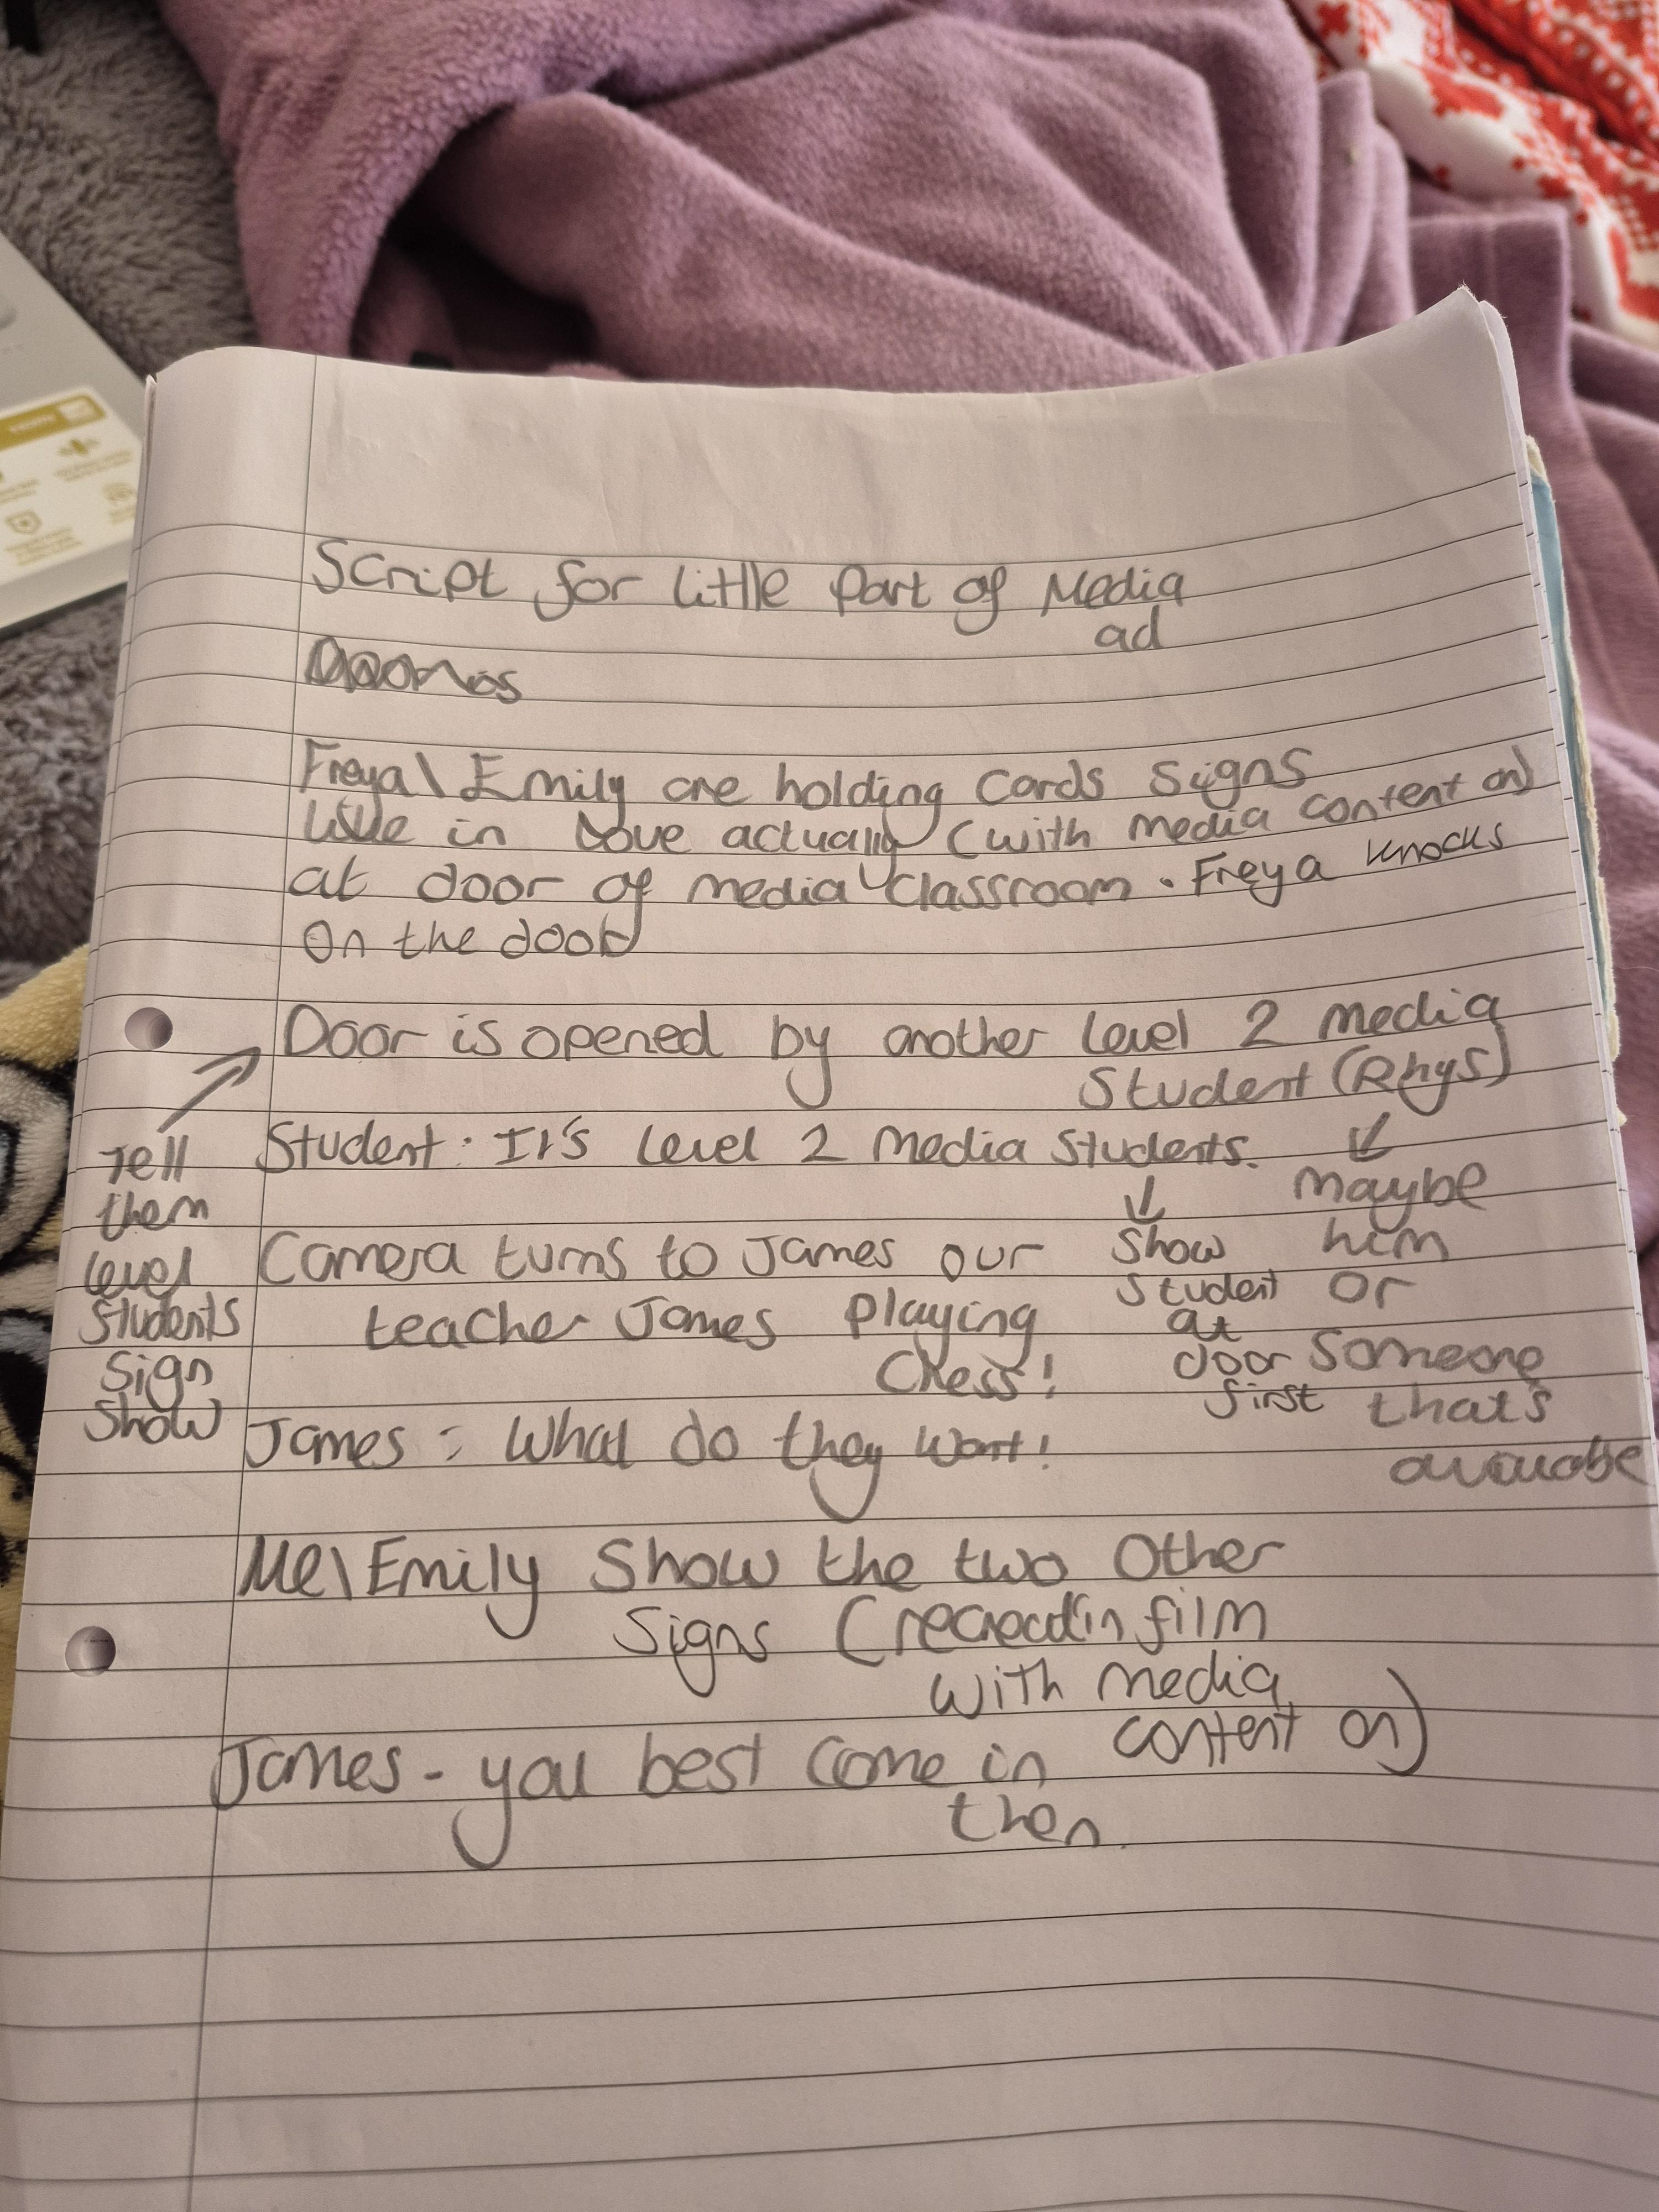 Script for little part of Media
ad
Freya\Emily are holding cards signs
like in Love actually (with media content on)
at door of media classroom. Freya knocks
on the door
Door is opened by another level 2 media
student (Rhys)
↓
maybe
him
or
someone
that's
Tell
them
level
students
sign
show
Student: It's level 2 media students.
↓
show
student
at
door
first
Camera turns to James our
teacher James playing
Chess!
James: What do they want!
Me\Emily show the two other
signs (
in film
with media
content on)
James - you best come in
then.